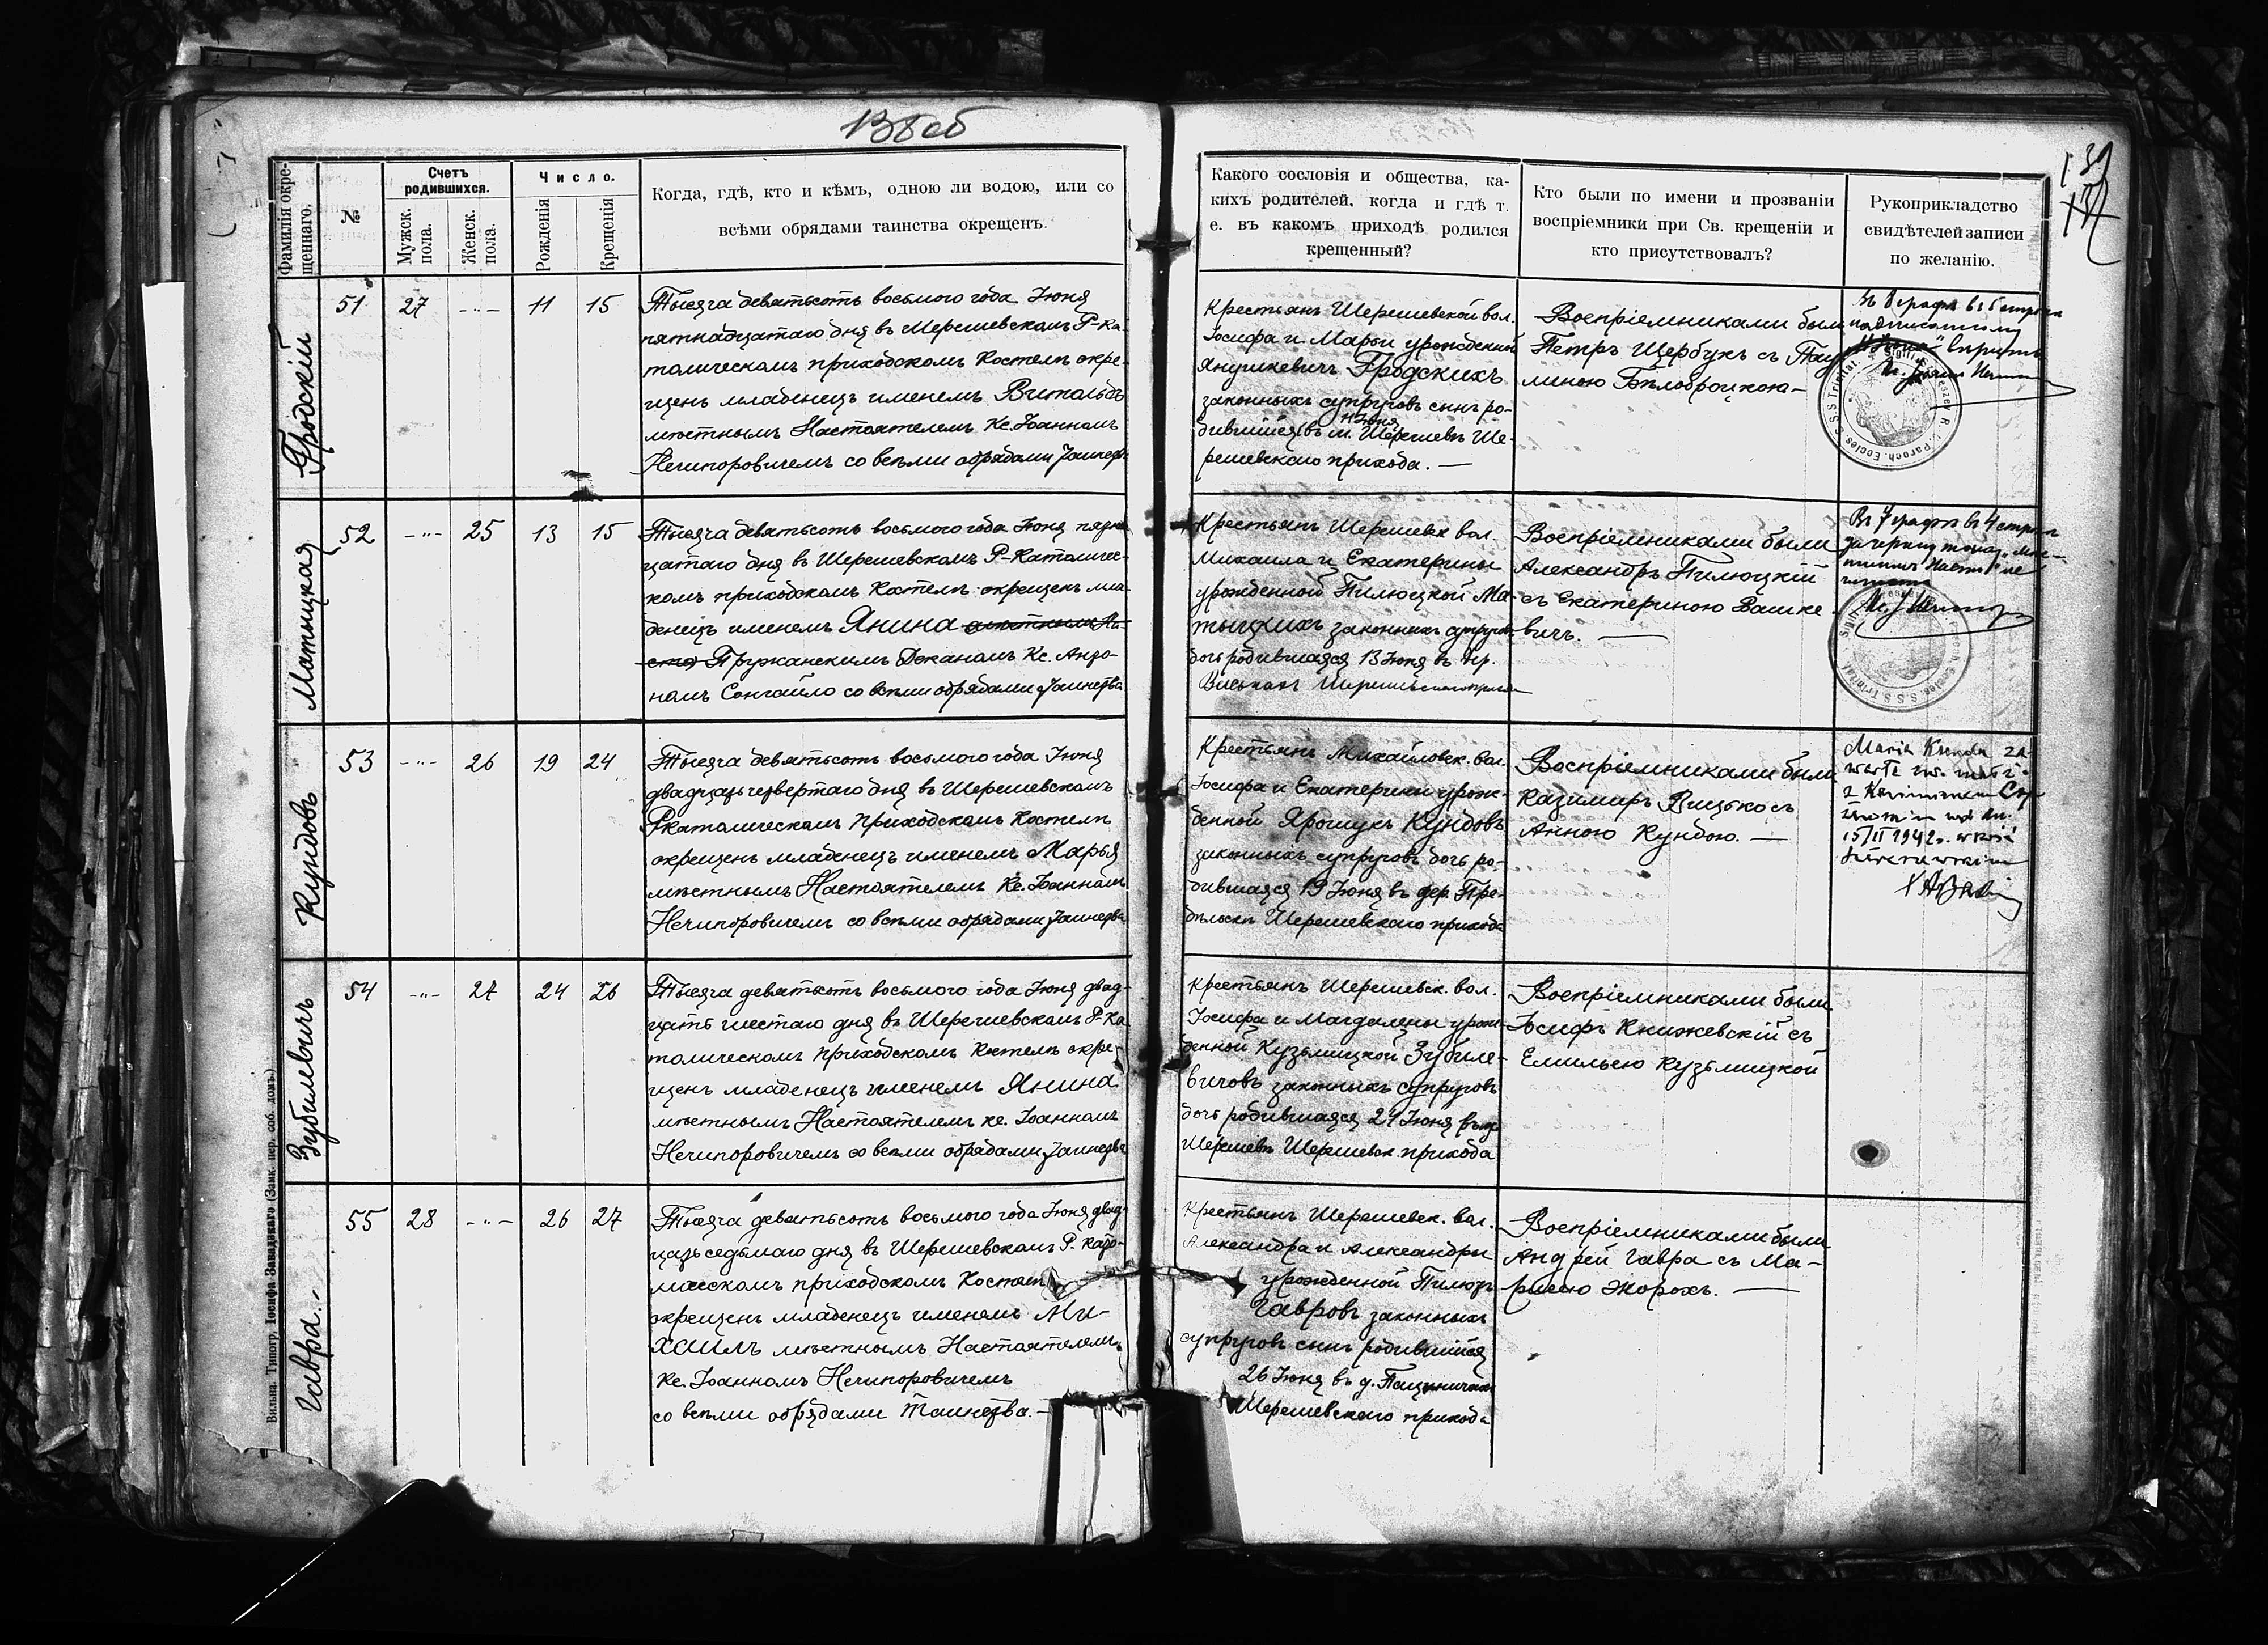 138 об
139
Фамилія окре-
щеннаго.
№
Счетъ
родившихся.
Мужск.
пола.
Женск.
пола.
Число.
Рожденія
Крещенія
Когда, гдѣ, кто и кѣмъ, одною ли водою, или со
всѣми обрядами таинства окрещенъ.
Какого сословія и общества, ка-
кихъ родителей, когда и гдѣ т.
е. въ какомъ приходѣ родился
крещенный?
Кто были по имени и прозванію
воспріемники при Св. крещеніи и
кто присутствовалъ?
Рукоприкладство
свидѣтелей записи
по желанію.
Гродскій
51 27 -"- 11 15
Тысяча девятьсотъ восьмого года Іюня
пятнадцатаго дня въ Шерешевскомъ Р-Ка-
толическомъ приходскомъ Костелѣ окре-
щенъ младенецъ именемъ Витольдъ
мѣстнымъ Настоятелемъ Кс. Іоанномъ
Нечипоровичемъ со всѣми обрядами Таинства
Крестьянъ Шерешевской вол.
Іосифа и Маріи урожденной
Янушкевичъ Гродскихъ
законныхъ супруговъ сынъ ро-
11 Іюня
дившійся въ м. Шерешевѣ Ше-
решевскаго прихода. —
Воспріемниками были
Петръ Щербукъ съ Пау-
линою Бѣлоброцкою-
Матыцкая
52 -"- 25 13 15
Тысяча девятьсотъ восьмого года Іюня пятнад
цатаго дня въ Шерешевскомъ Р-Католичес-
комъ приходскомъ Костелѣ окрещенъ мла-
денецъ именемъ Янина мѣстнымъ На-
Пружанскимъ Деканомъ Кс. Анто-
номъ Сонгайло со всѣми обрядами Таинства
Крестьянъ Шерешевск вол.
Михаила и Екатерины
урожденной Пилюцкой Ма-
тыцкихъ законныхъ супруговъ
дочь родившаяся 13 Іюня въ
Воспріемниками были
Александръ Пилюцкій
съ Екатериною Вашке-
вичъ. —
Кундовъ
53 -"- 26 19 24
Тысяча девятьсотъ восьмого года Іюня
двадцать четвертаго дня въ Шерешевскомъ
Р католическомъ приходскомъ Костелѣ
окрещенъ младенецъ именемъ Марья
мѣстнымъ Настоятелемъ Кс. Іоанномъ
Нечипоровичемъ со всѣми обрядами Таинства
Крестьянъ Михайловск. вол.
Іосифа и Екатерины урож-
денной Ярошукъ Кундовъ
законныхъ супруговъ дочь ро-
дившаяся 19 Іюня въ дер. Пре-
дѣльскѣ Шерешевскаго прихода
Воспріемниками были
Казимиръ Вицько съ
Анною Кундою. —
Maria Kunda za-
15/II 1942 r.
Зубилевичъ
54 -"- 27 24 26
Тысяча девятьсотъ восьмого года Іюня двад-
цать шестаго дня въ Шерешевскомъ Р-Ка
толическомъ приходскомъ Костелѣ окре-
щенъ младенецъ именемъ Янина
мѣстнымъ Настоятелемъ кс. Іоанномъ
Нечипоровичемъ со всѣми обрядами Таинства
Крестьянъ Шерешевск. вол.
Іосифа и Магдалены урож-
денной Кузьмицкой Зубиле-
вичовъ законныхъ супруговъ
дочь родившаяся 24 Іюня въ м
Шерешевѣ Шерешевск прихода
Воспріемниками были
Іосифъ Книжевскій съ
Емильею Кузьмицкой
Гавра.-
55 28 -"- 26 27
Тысяча девятьсотъ восьмого года Іюня двад-
цать седьмаго дня въ Шерешевскомъ Р. Като-
лическомъ приходскомъ Костелѣ
окрещенъ младенецъ именемъ Ми-
хаилъ мѣстнымъ Настоятелемъ
Кс. Іоанномъ Нечипоровичемъ
со всѣми обрядами Таинства. —
Крестьянъ Шерешевск. вол.
Александра и Александры
урожденной
Гавровъ законныхъ
супруговъ сынъ родившійся
26 Іюня въ д.
Шерешевскаго прихода
Воспріемниками были
Андрей Гавра съ Ма-
рьею Жорохъ. —
Вильна. Типогр. Іосифа Завадзкаго (Замк. пер. соб. домъ.)